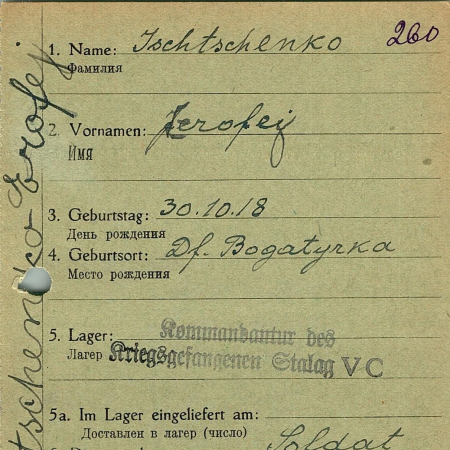 260
1. Name: Ischtschenko
Фамилия
2. Vornamen: Jerofej
Имя
3. Geburtstag: 30.10.18
День рождения
4. Geburtsort: Df. Bogatyrka
Место рождения
5. Lager: Kommandantur des
Лагер Kriegsgefangenen Stalag V C
5a. Im Lager eingeliefert am:
Доставлен в лагер (число)
Soldat
tschenko Erofej